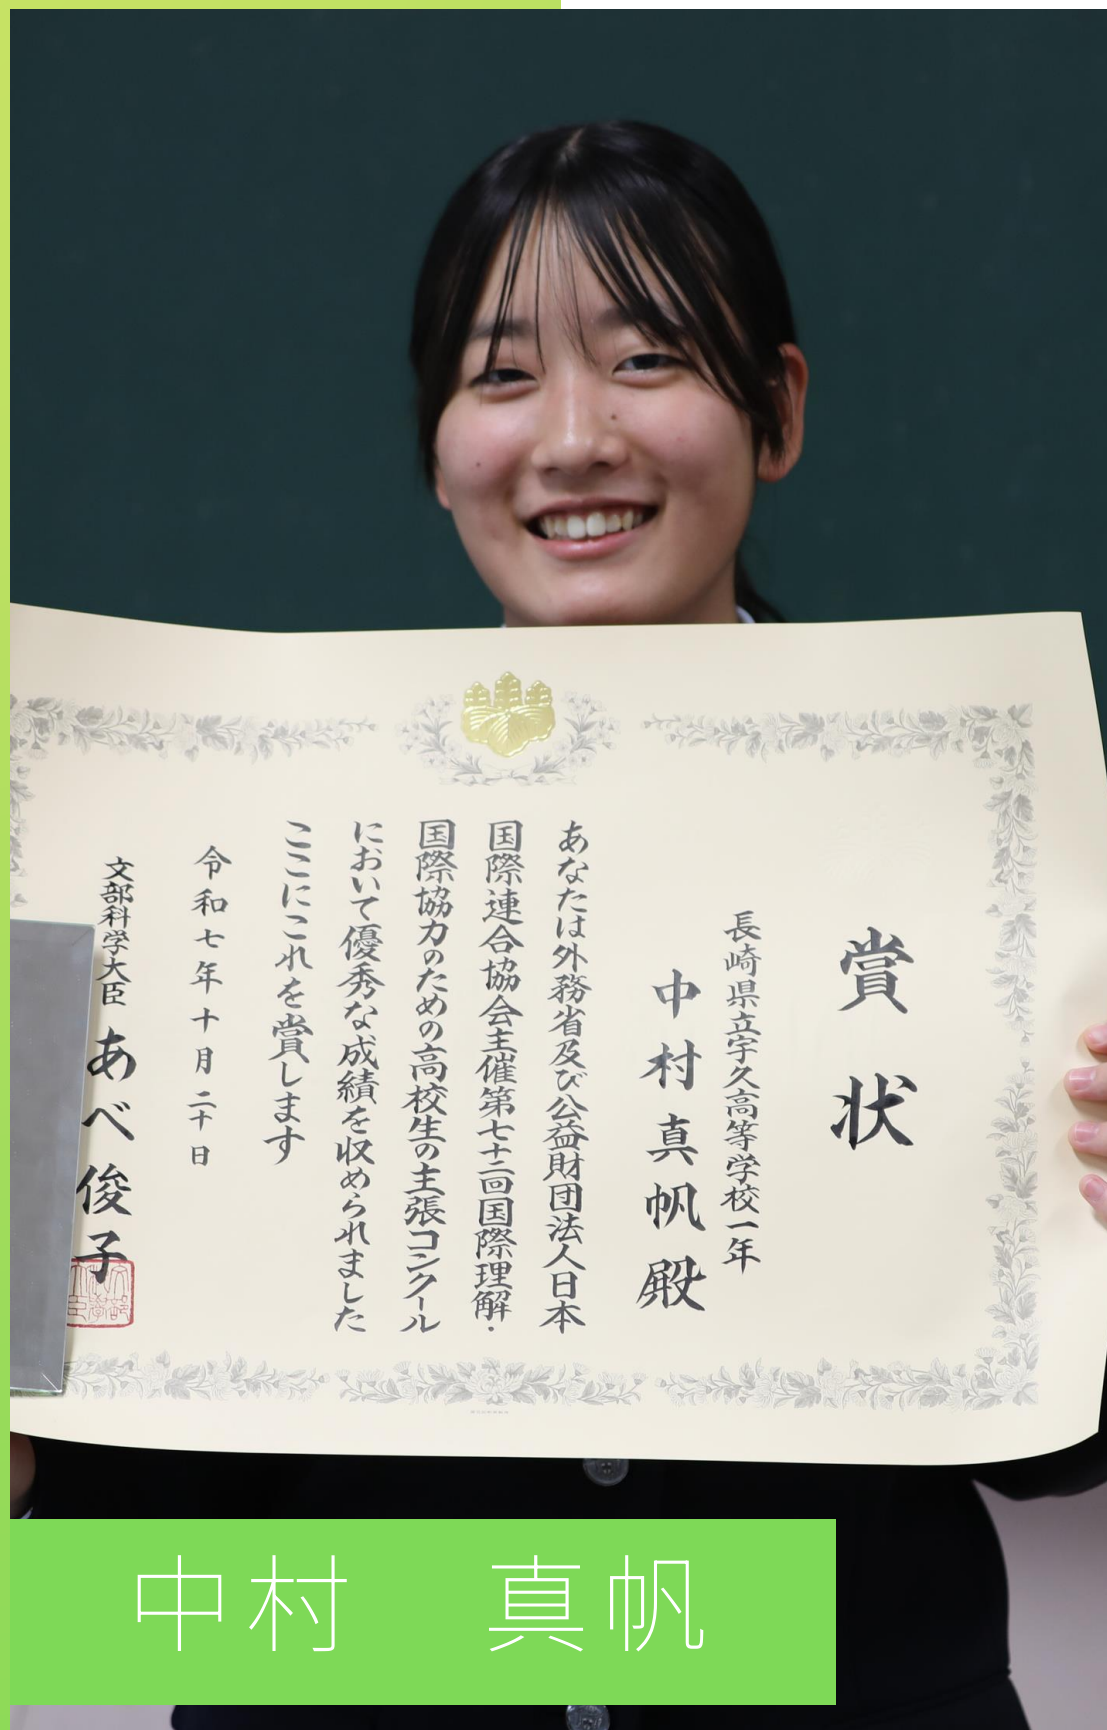 賞状
長崎県立宇久高等学校一年
中村真帆殿
あなたは外務省及び公益財団法人日本
国際連合協会主催第七十二回国際理解・
国際協力のための高校生の主張コンクール
において優秀な成績を収められました
ここにこれを賞します
令和七年十月二十日
文部科学大臣 あべ俊子
中村 真帆